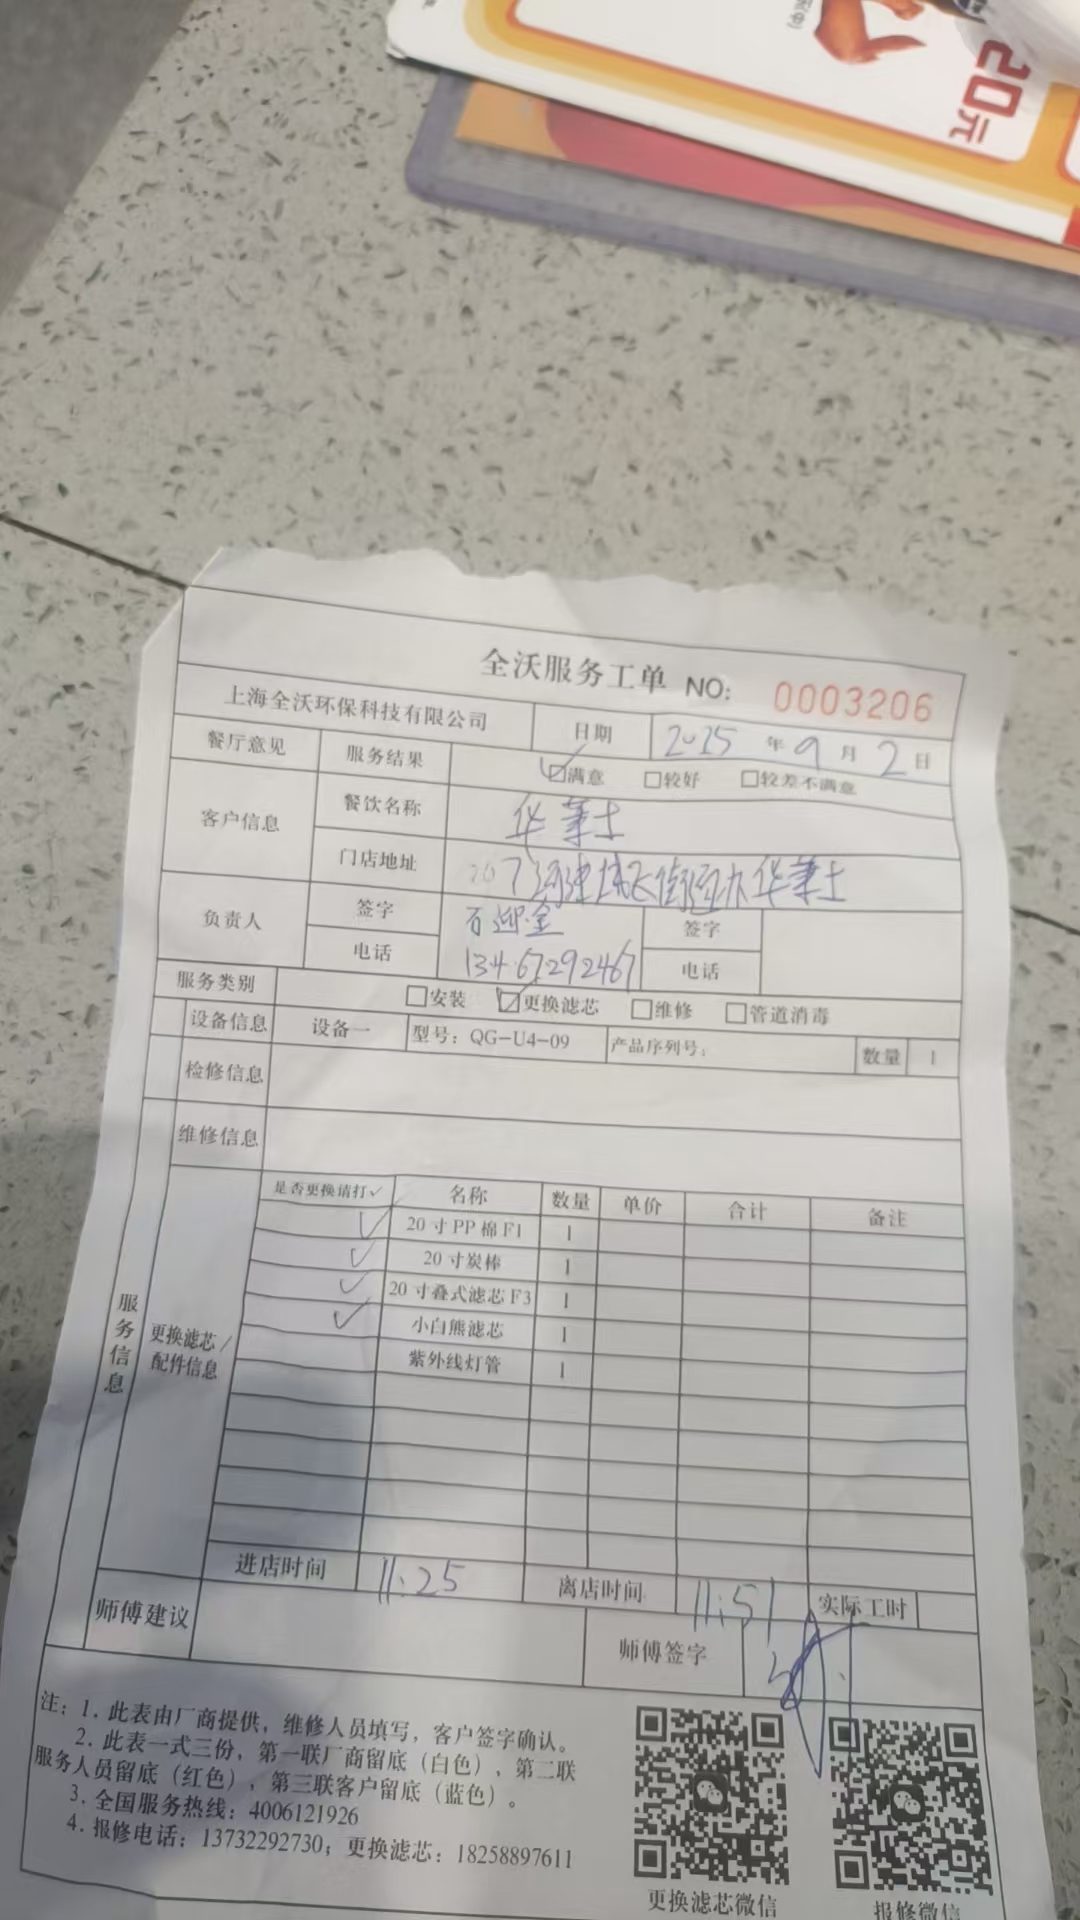 20元
全沃服务工单 NO: 0003206
上海全沃环保科技有限公司 日期 2025 年 9 月 2 日
餐厅意见 服务结果 ☑满意 □较好 □较差不满意
客户信息 餐饮名称 华莱士
门店地址 华莱士
负责人 签字 签字
电话 13467292467 电话
服务类别 □安装 ☑更换滤芯 □维修 □管道消毒
设备信息 设备一 型号: QG-U4-09 产品序列号: 数量 1
检修信息
维修信息
服务信息
更换滤芯/配件信息
是否更换请打✓ 名称 数量 单价 合计 备注
✓ 20寸PP棉F1 1
✓ 20寸炭棒 1
✓ 20寸叠式滤芯F3 1
✓ 小白熊滤芯 1
紫外线灯管 1
进店时间 11:25 离店时间 11:51 实际工时
师傅建议 师傅签字
注: 1. 此表由厂商提供, 维修人员填写, 客户签字确认。
2. 此表一式三份, 第一联厂商留底 (白色), 第二联
服务人员留底 (红色), 第三联客户留底 (蓝色)。
3. 全国服务热线: 4006121926
4. 报修电话: 13732292730; 更换滤芯: 18258897611
更换滤芯微信 报修微信